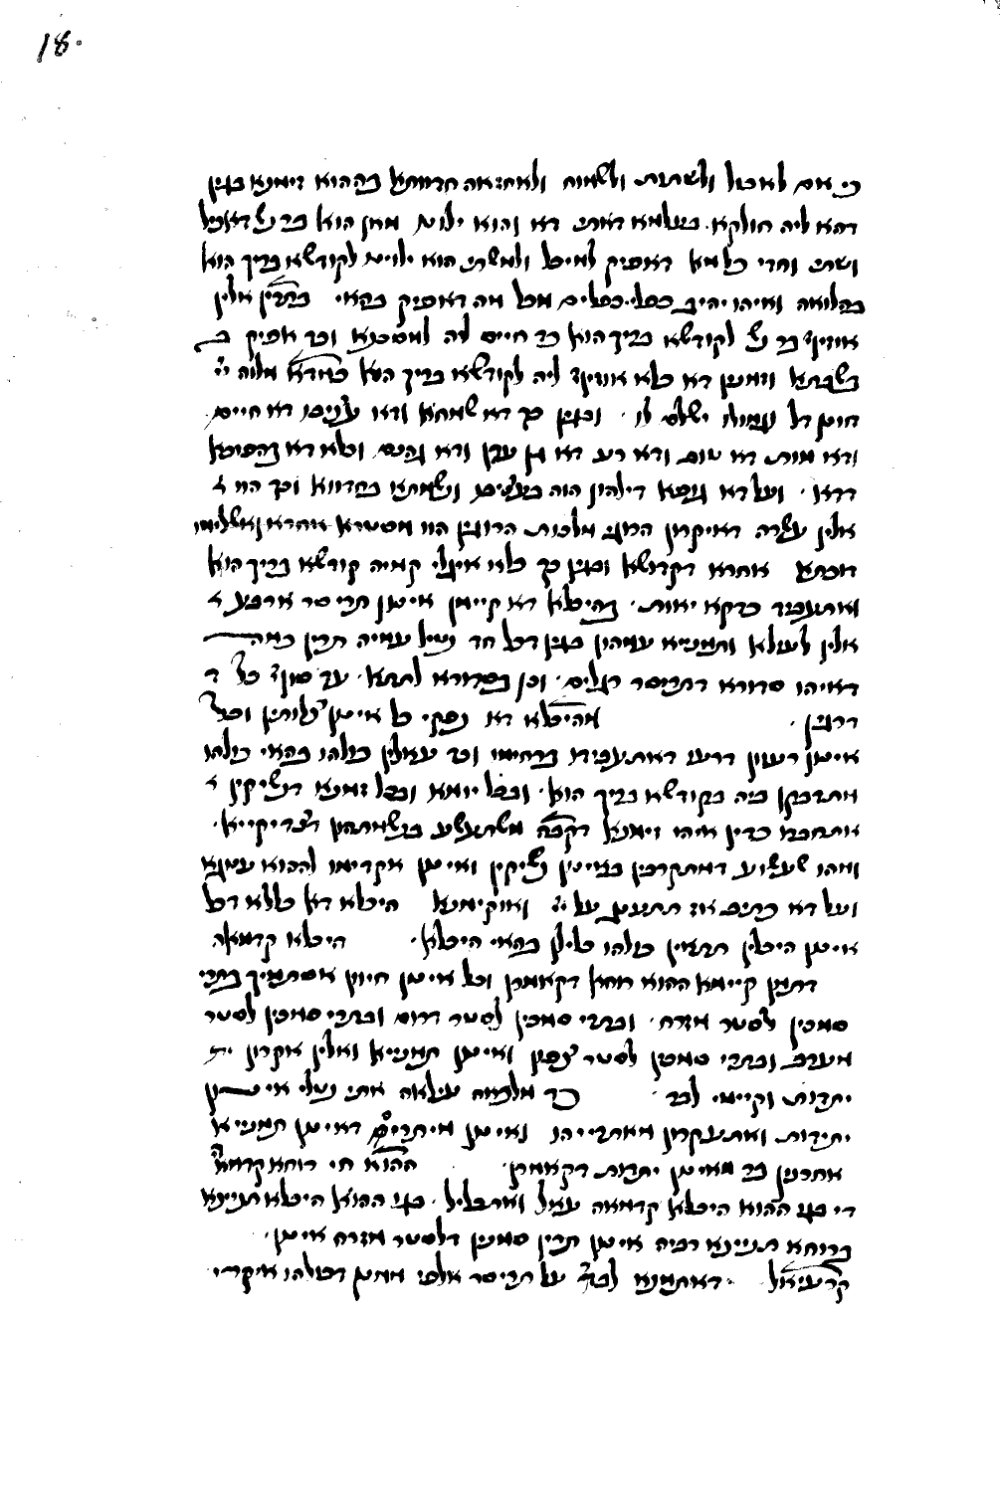 18.
כי אם לאכול ולשתות ולשמוח ולאחזאה חדוותא בההוא זימנא בגין
דהא ליה חולקא בעלמא דאתי דא והוא ילוה מאן הוא בר נש דאכיל
ושתי וחדי כל מאן דאפיק למיכל ולמשתי הוא ילוה לקודשא בריך הוא
בהלואה ואיהו יהיב כפלי כפלים מכל מה דאפיק בהאי בתרין אלין
אוזיף בר נש לקודשא בריך הוא כד חייס ליה למסכנא וכד אפיק ב
בשבתא וזמנין דא כלא אוזיף ליה לקודשא בריך הוא כמה דא מלוה יי
חונן דל וגמולו ישלם לו וכגין כך דא שמחה ודא עניבו דא חיים
ודא מות דא טוב ודא רע דא גן עדן ודא גיהנם וכלא דא בהפוכא
דדא ועל דא נפשא דילהון הוה בצערא ונשמתא בחדווא וכד הוו
אלין עשרה דאיקרון הרוגי מלכות הרוגין הוו מסטרא אחרא ואשלימו
דוכתא אחרא דקדושא וכגין כך כלא איגלי קמיה קודשא בריך הוא
ואתעביד כדקא יאות בהיכלא דא קיימן אינון תריסר ארבע
אלין לעילא ותמניא עמהון בגין דכל חד נטיל עמיה תרין כמה
דאיהו סדורא דתריסר רגלים וכן בסדורא לתתא עד סוף כל ד
דרגין מהיכלא דא נפקי כל אינון צלותין וכל
אינון רעוון דרעו דאתעבידו ברחימו וכד עאלין כולהו בהאי כולהו
מתדבקן ביה בקודשא בריך הוא ובכל יומא ובכל זמנא דנשיקין
אתחברו כדין איהו זימנא דקב״ה משתעשע בנשמתהון דצדיקייא
ומהו שעשוע דמתקרבין באינון נשיקין ואינון אקדימו לההוא ענוגא
ועל דא כתיב אז תתענג על יי ואוקימנא היכלא דא כללא דכל
אינון היכלין תתאין כולהו כלילן בהאי היכלא היכלא קדמאה
דתמן קיימא ההוא רוחא דקאמרן וכל אינון חיוון אסתמיך בתרי
סמכין לסטר מזרח ובתרי סמכין לסטר דרום ובתרי סמכין לסטר
מערב ובתרי סמכין לסטר צפון ואינון תמניא ואלין אקרון ית
יתדות וקיימי לבר כד מלכות עילאה אתי נטלי אינון
יתידות ואתעקרון מאתרייהו ואינון מיתרים דאינון תמניא
אחרנין בר מאינון יתדות דקאמרן ההוא חי רוחא קדמאה
די בגו ההוא היכלא קדמאה עאיל ואתכליל בגו ההוא היכלא תניינא
ברוחא תניינא דביה אינון תרין סמכין דלסטר מזרח אינון
קדעיאל דאתמנא לבר על תריסר אלפי אחרן דכולהו איקרי